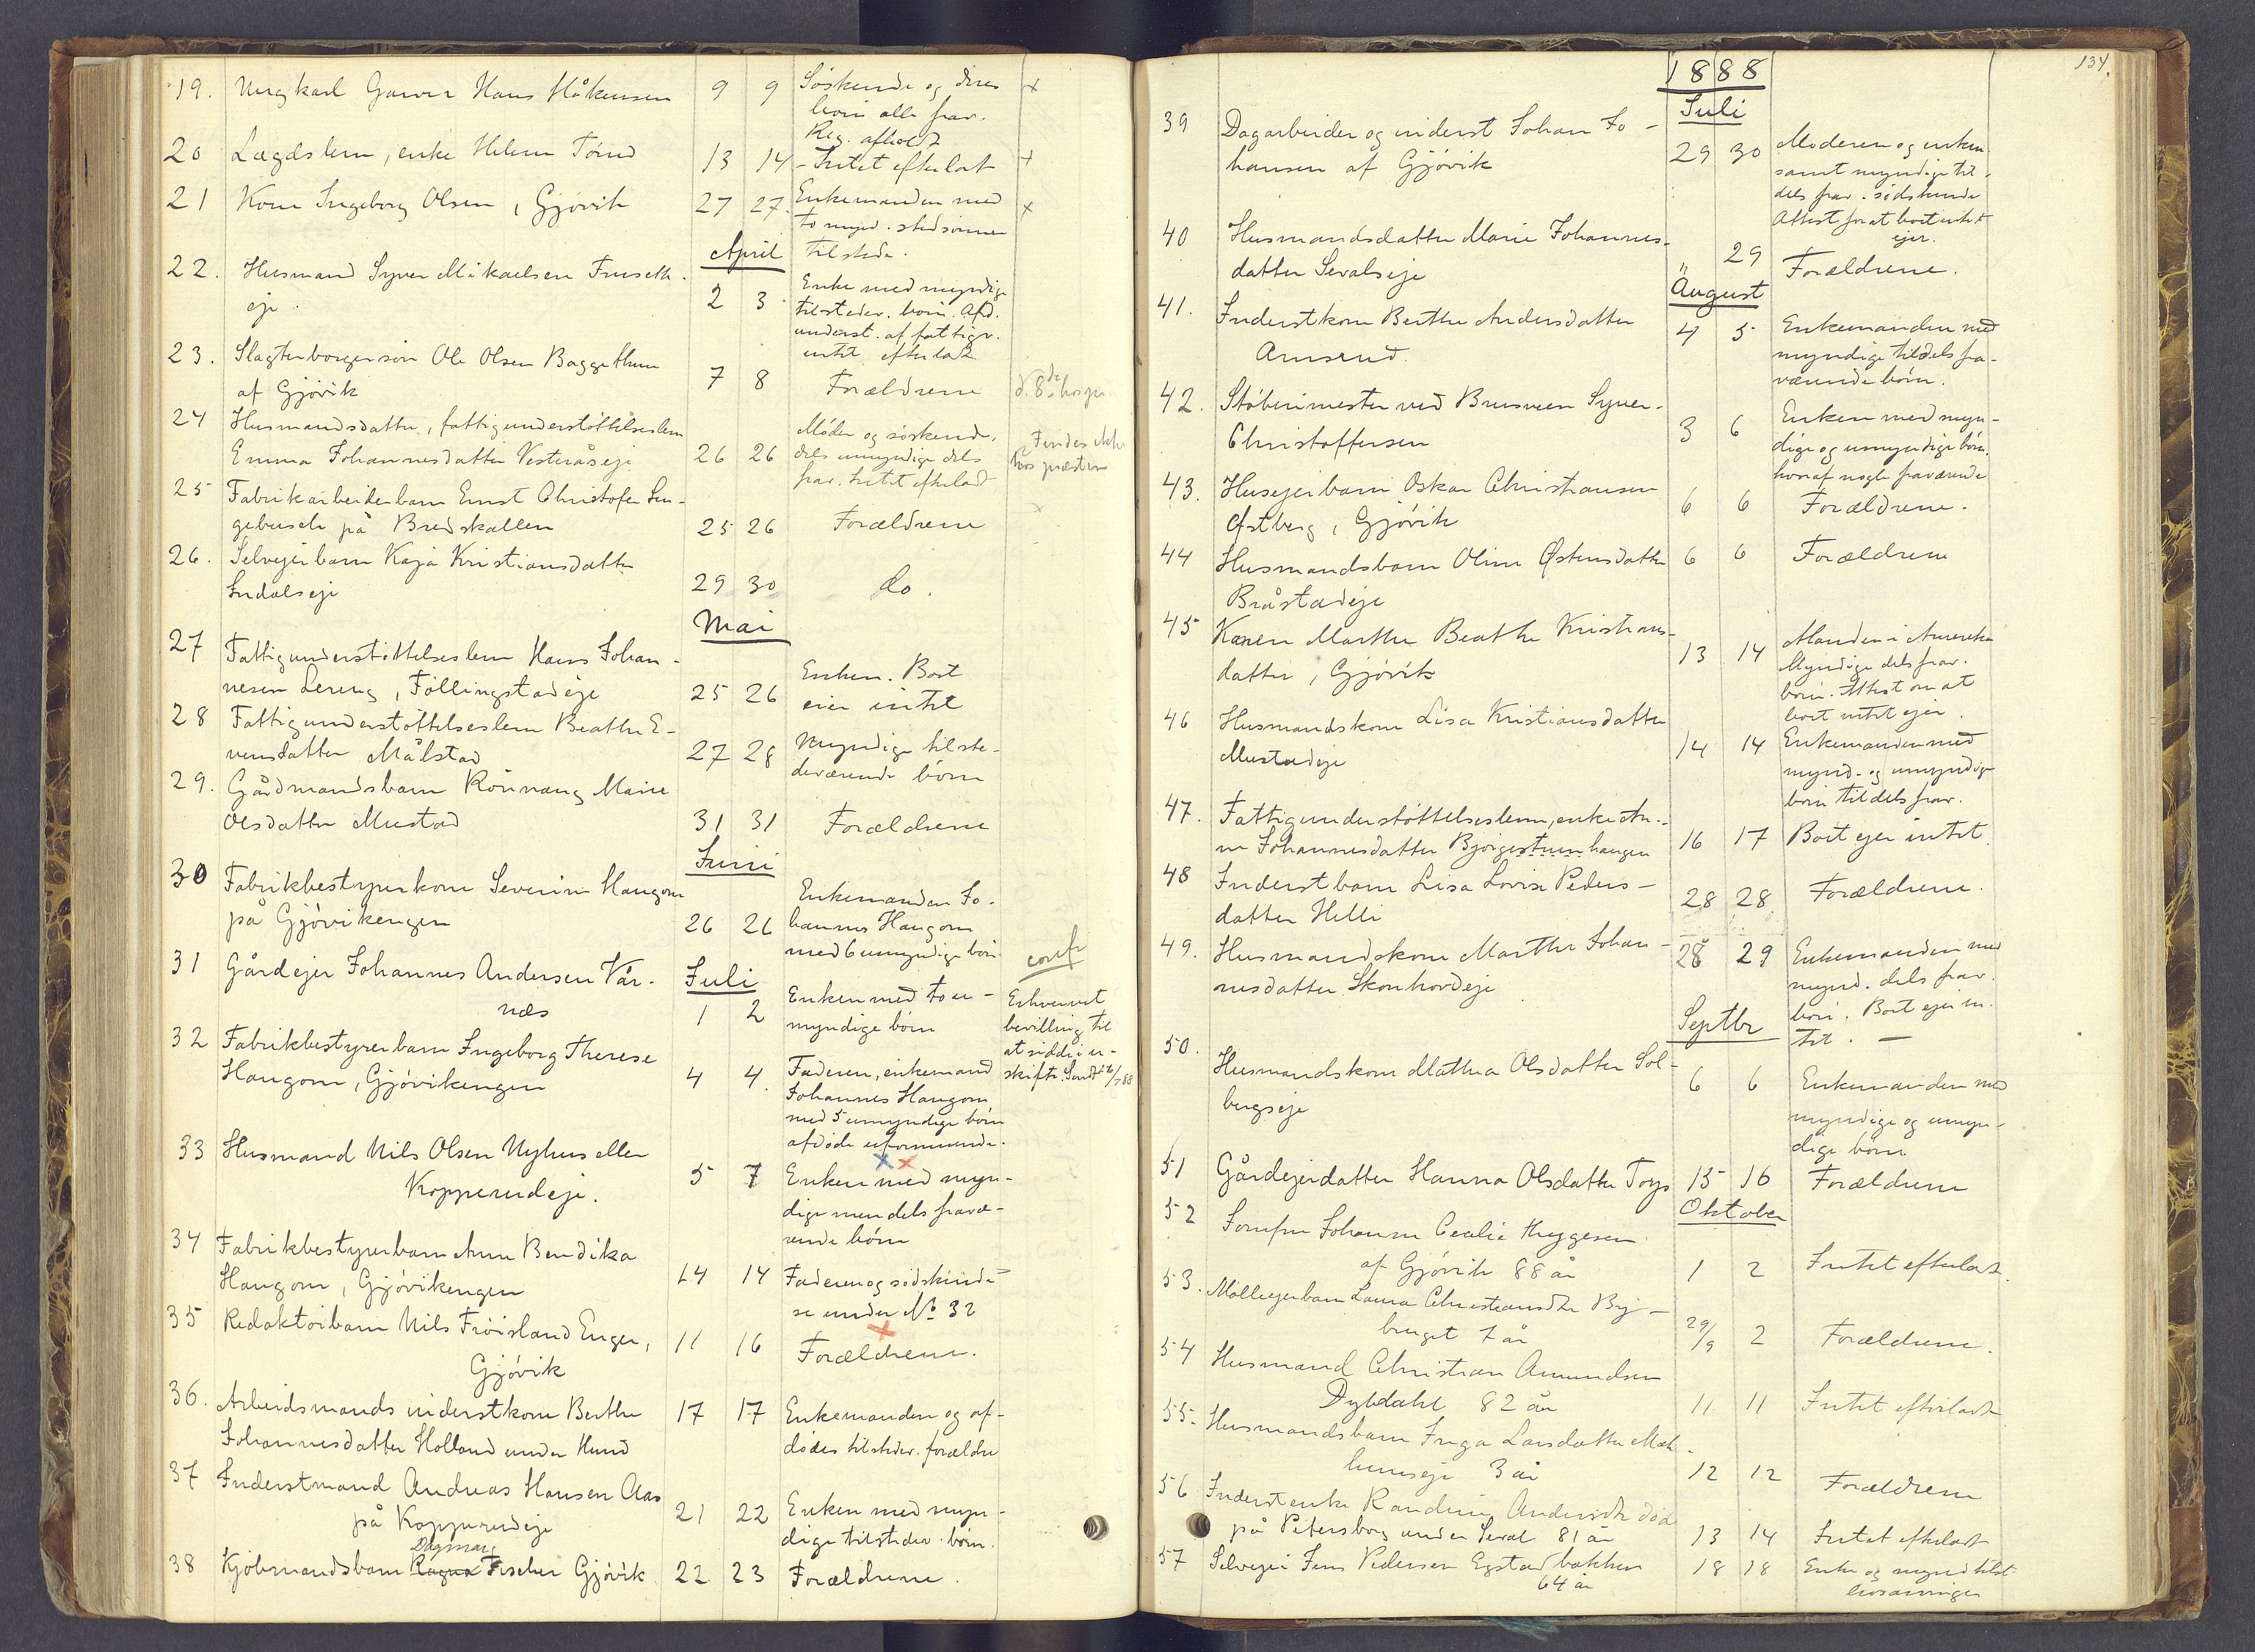 19. Ungkarl Garver Hans Håkensen 9 9 Søskende og deres +
børn alle frav.
Reg. afholdt
20 Lægdslem, enke Helene Tønd 13 14 - Intet efterladt +
21 Kone Ingeborg Olsen, Gjøvik 27 27. Enkemanden med +
to mynd. stedsønner
April tilstede.
22. Husmand Syver Mikaelsen Fruseth-
eje. 2 3 Enke med myndige
tilstedev. børn. Afd.
underst. af fattigv.
intet efterladt
23. Slagterborgersøn Ole Olsen Baggethun
af Gjøvik 7 8 Forældrene d. 8de hos pr.
24 Husmandsdatter, fattigunderstøttelseslem
Emma Johannesdatter Vesteråseje 26 26 Moder og søskende,
dels umyndige dels
frav. Intet efterladt Findes ikke
hos præsten
25 Fabrikarbeiderbarn Ernst Christofer
på Bredskallen 25 26 Forældrene
26. Selveierbarn Kaja Kristiansdatter
Indalseje 29 30 do.
Mai
27 Fattigunderstøttelseslem Hans Johan-
nesen Lereng, Føllingstadeje 25 26 Enken. Boet
eier intet
28 Fattigunderstøttelseslem Beathe E-
vensdatter Målstad 27 28 Myndige tilste-
deværende børn
29. Gårdmandsbarn Rønnaug Marie
Olsdatter Mustad 31 31 Forældrene
Juni
30 Fabrikbestyrerkone Severine Haugom
på Gjøvikengen 26 26 Enkemanden Jo-
hannes Haugom
med 6 umyndige børn conf
31 Gårdejer Johannes Andersen Vår-
næs Juli 1 2 Enken med to u-
myndige børn Erhvervet
bevilling til
at sidde i u-
skifte. Sendt
32 Fabrikbestyrerbarn Ingeborg Therese
Haugom, Gjøvikengen 4 4. Faderen, enkemand
Johannes Haugom
med 5 umyndige børn
afdøde
33 Husmand Nils Olsen Nyhus eller
Kopperudeje. 5 7 Enken med myn-
dige men dels fravæ-
rende børn
34 Fabrikbestyrerbarn Anne Bendika
Haugom, Gjøvikengen 14 14 Faderen og sødskende
se under No 32
35 Redaktørbarn Nils Frøisland Enger,
Gjøvik 11 16 Forældrene.
36. Arbeidsmands inderstkone Berthe
Johannesdatter Holland under Hund 17 17 Enkemanden og af-
dødes tilstedev. forældre
37 Inderstmand Andreas Hansen Aas
på Kopperudeje 21 22 Enken med myn-
dige tilstedev. børn.
Dagmar
38 Kjøbmandsbarn Ragna Fischer Gjøvik 22 23 Forældrene.
134.
1888
Juli
39 Dagarbeider og inderst Johan Jo-
hansen af Gjøvik 29 30 Moderen og enken
samt myndige til-
dels frav. sødskende
Attest for at boet intet
ejer.
40 Husmandsdatter Marie Johannes-
datter Sevalseje " 29 Forældrene.
August
41. Inderstkone Berthe Andersdatter
Amsrud. 4 5 Enkemanden med
myndige tildels fra-
værende børn.
42. Støberimester ved Brusveen Syver
Christoffersen 3 6 Enken med myn-
dige og umyndige børn,
hvoraf nogle fraværende
43. Husejerbarn Oskar Christiansen
Østberg, Gjøvik 6 6 Forældrene.
44 Husmandsbarn Oline Østensdatter
Bråstadeje 6 6 Forældrene
45 Konen Marthe Beathe Kristians-
datter, Gjøvik 13 14 Manden i Amerika
Myndige dels frav.
børn. Attest om at
boet intet ejer.
46 Husmandskone Lisa Kristiansdatter
Mustadeje 14 14 Enkemanden med
mynd. og umyndige
børn tildels frav.
47. Fattigunderstøttelseslem, enke An-
ne Johannesdatter Bjørgestuenhaugen 16 17 Boet ejer intet.
48 Inderstbarn Lisa Lovise Peders-
datter Helli 28 28 Forældrene.
49. Husmandskone Marthe Johan-
nesdatter Skonhovdeje 28 29 Enkemanden med
mynd. dels frav.
børn. Boet ejer in-
tet. —
Septbr
50. Husmandskone Mathea Olsdatter Sol-
bergseje 6 6 Enkemanden med
myndige og umyn-
dige børn
51 Gårdejerdatter Hanna Olsdatter Torp 15 16 Forældrene
Oktober
52 Jomfru Johanne Cecilie Thygesen
af Gjøvik 88 år 1 2 Intet efterladt.
53. Mølleejerbarn Laura Christiansdtr By-
bruget 7 år 29/9 2 Forældrene.
54 Husmand Christian Amundsen
Dybdahl 82 år 11 11 Intet efterladt
55. Husmandsbarn Inga Larsdatter Mæh-
lumseje 3 år 12 12 Forældrene
56 Inderstenke Randine Andersdtr død
på Petersborg under Seval 81 år 13 14 Intet efterladt
57 Selveier Jens Pedersen Egstadbakken
64 år 18 18 Enke og mynd. tilst.
livsarvinger